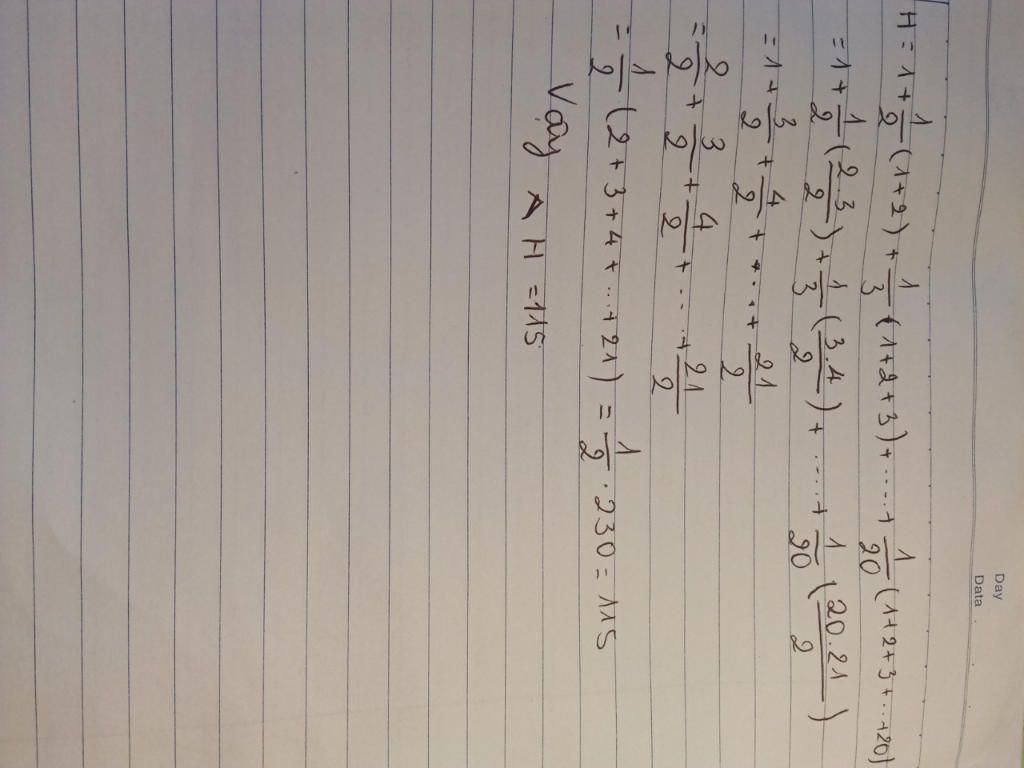 Day
Data
H = 1 + 1/2 (1+2) + 1/3 (1+2+3) + ..... + 1/20 (1+2+3+...+20)
= 1 + 1/2 (2.3/2) + 1/3 (3.4/2) + ..... + 1/20 (20.21/2)
= 1 + 3/2 + 4/2 + ... + 21/2
= 2/2 + 3/2 + 4/2 + ... + 21/2
= 1/2 (2+3+4+...+21) = 1/2 . 230 = 115
Vậy H = 115